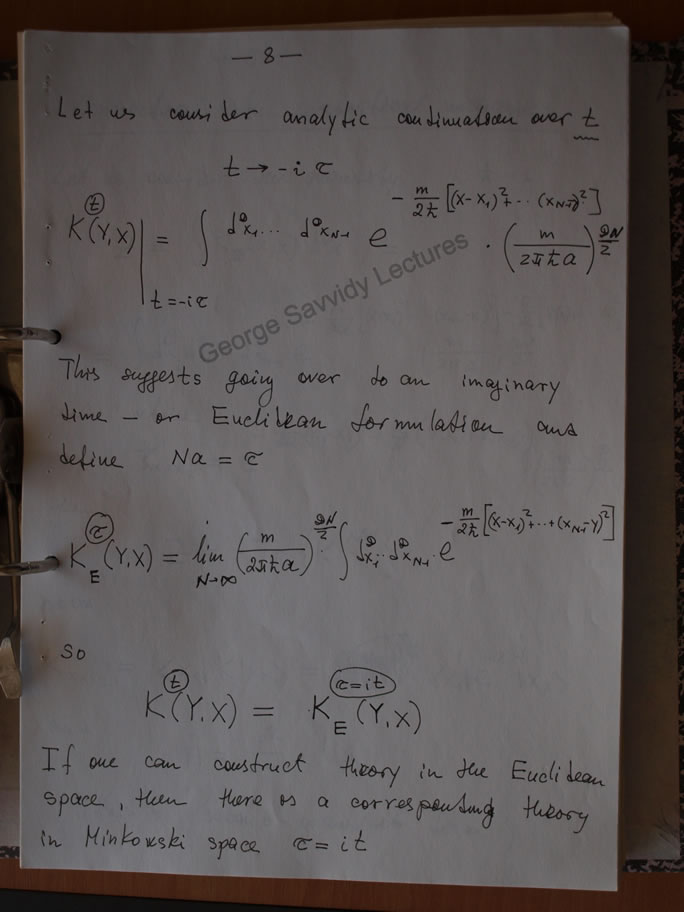 — 8 —
Let us consider analytic continuation over t
t → -i τ
K^(t)(Y,X)|_{t=-iτ} = ∫ d^D x_1 ... d^D x_{N-1} e^{-m/2ħ [(x-x_1)^2+...(x_{N-1}-y)^2]} · (m/2πħa)^{DN/2}
George Savvidy Lectures
This suggests going over to an imaginary
time – or Euclidean formulation and
define Na = τ
K_E^(τ)(Y,X) = lim_{N→∞} (m/2πħa)^{DN/2} ∫ d^D x_1 .. d^D x_{N-1} · e^{-m/2ħ [(x-x_1)^2+...+(x_{N-1}-y)^2]}
so
K^(t)(Y,X) = K_E^(τ=it)(Y,X)
If one can construct theory in the Euclidean
space, then there is a corresponding theory
in Minkowski space τ = it